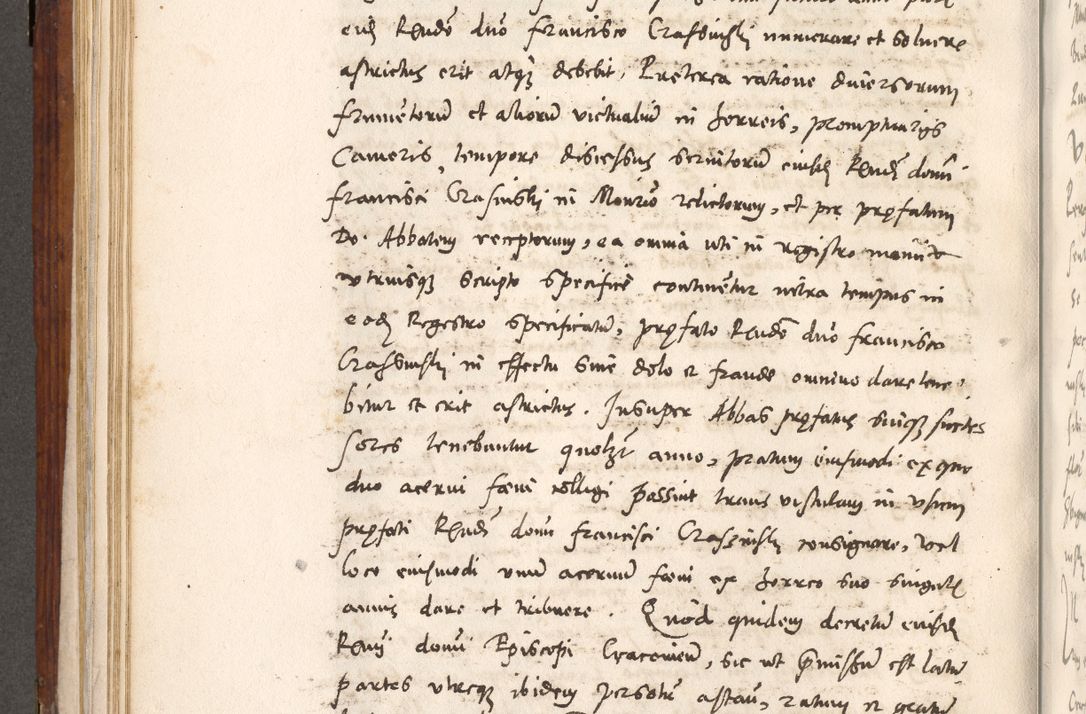 eidem Rendo dno Francisco Crassinski numerare et solvere
astrictus erit atq3 debebit, Preterea ratione diversorum
frumetorum et aliorum victualium in horreis, promptuarijs
Cameris, tempore discessus servitorum eiusdem Rendi domi
Francisci Crasinski in Monrio relictorum, et per prefatum
Do. Abbatem receptorum, ea omnia uti in registro manu
utriusq3 scripto specifice continetur infra tempus in
eodem Regestro specificatum, prefato Rendo dno Francisco
Crassinski in effectu sine dolo et fraude omnino dare tene-
bitur et erit astrictus. Insuper Abbas prefatus suiq3 succes
sores tenebuntur quolibet anno, pratum eiusmodi ex quo
duo acervi feni colligi possint trans vistulam in usum
prefati Rendi domi Francisci Craszinski consignare, vel
loco eiusmodi unum acervum feni ex horreo suo singulis
annis dare et tribuere. Quod quidem decretum eiusdem
Rmi domi Episcopi Cracovien, sic ut premissum est latum
partes utreq3 ibidem personaliter astan, ratum et gratum